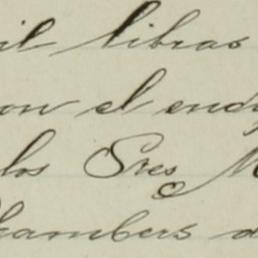 il libras
on el endo
los Sres M
hambers d